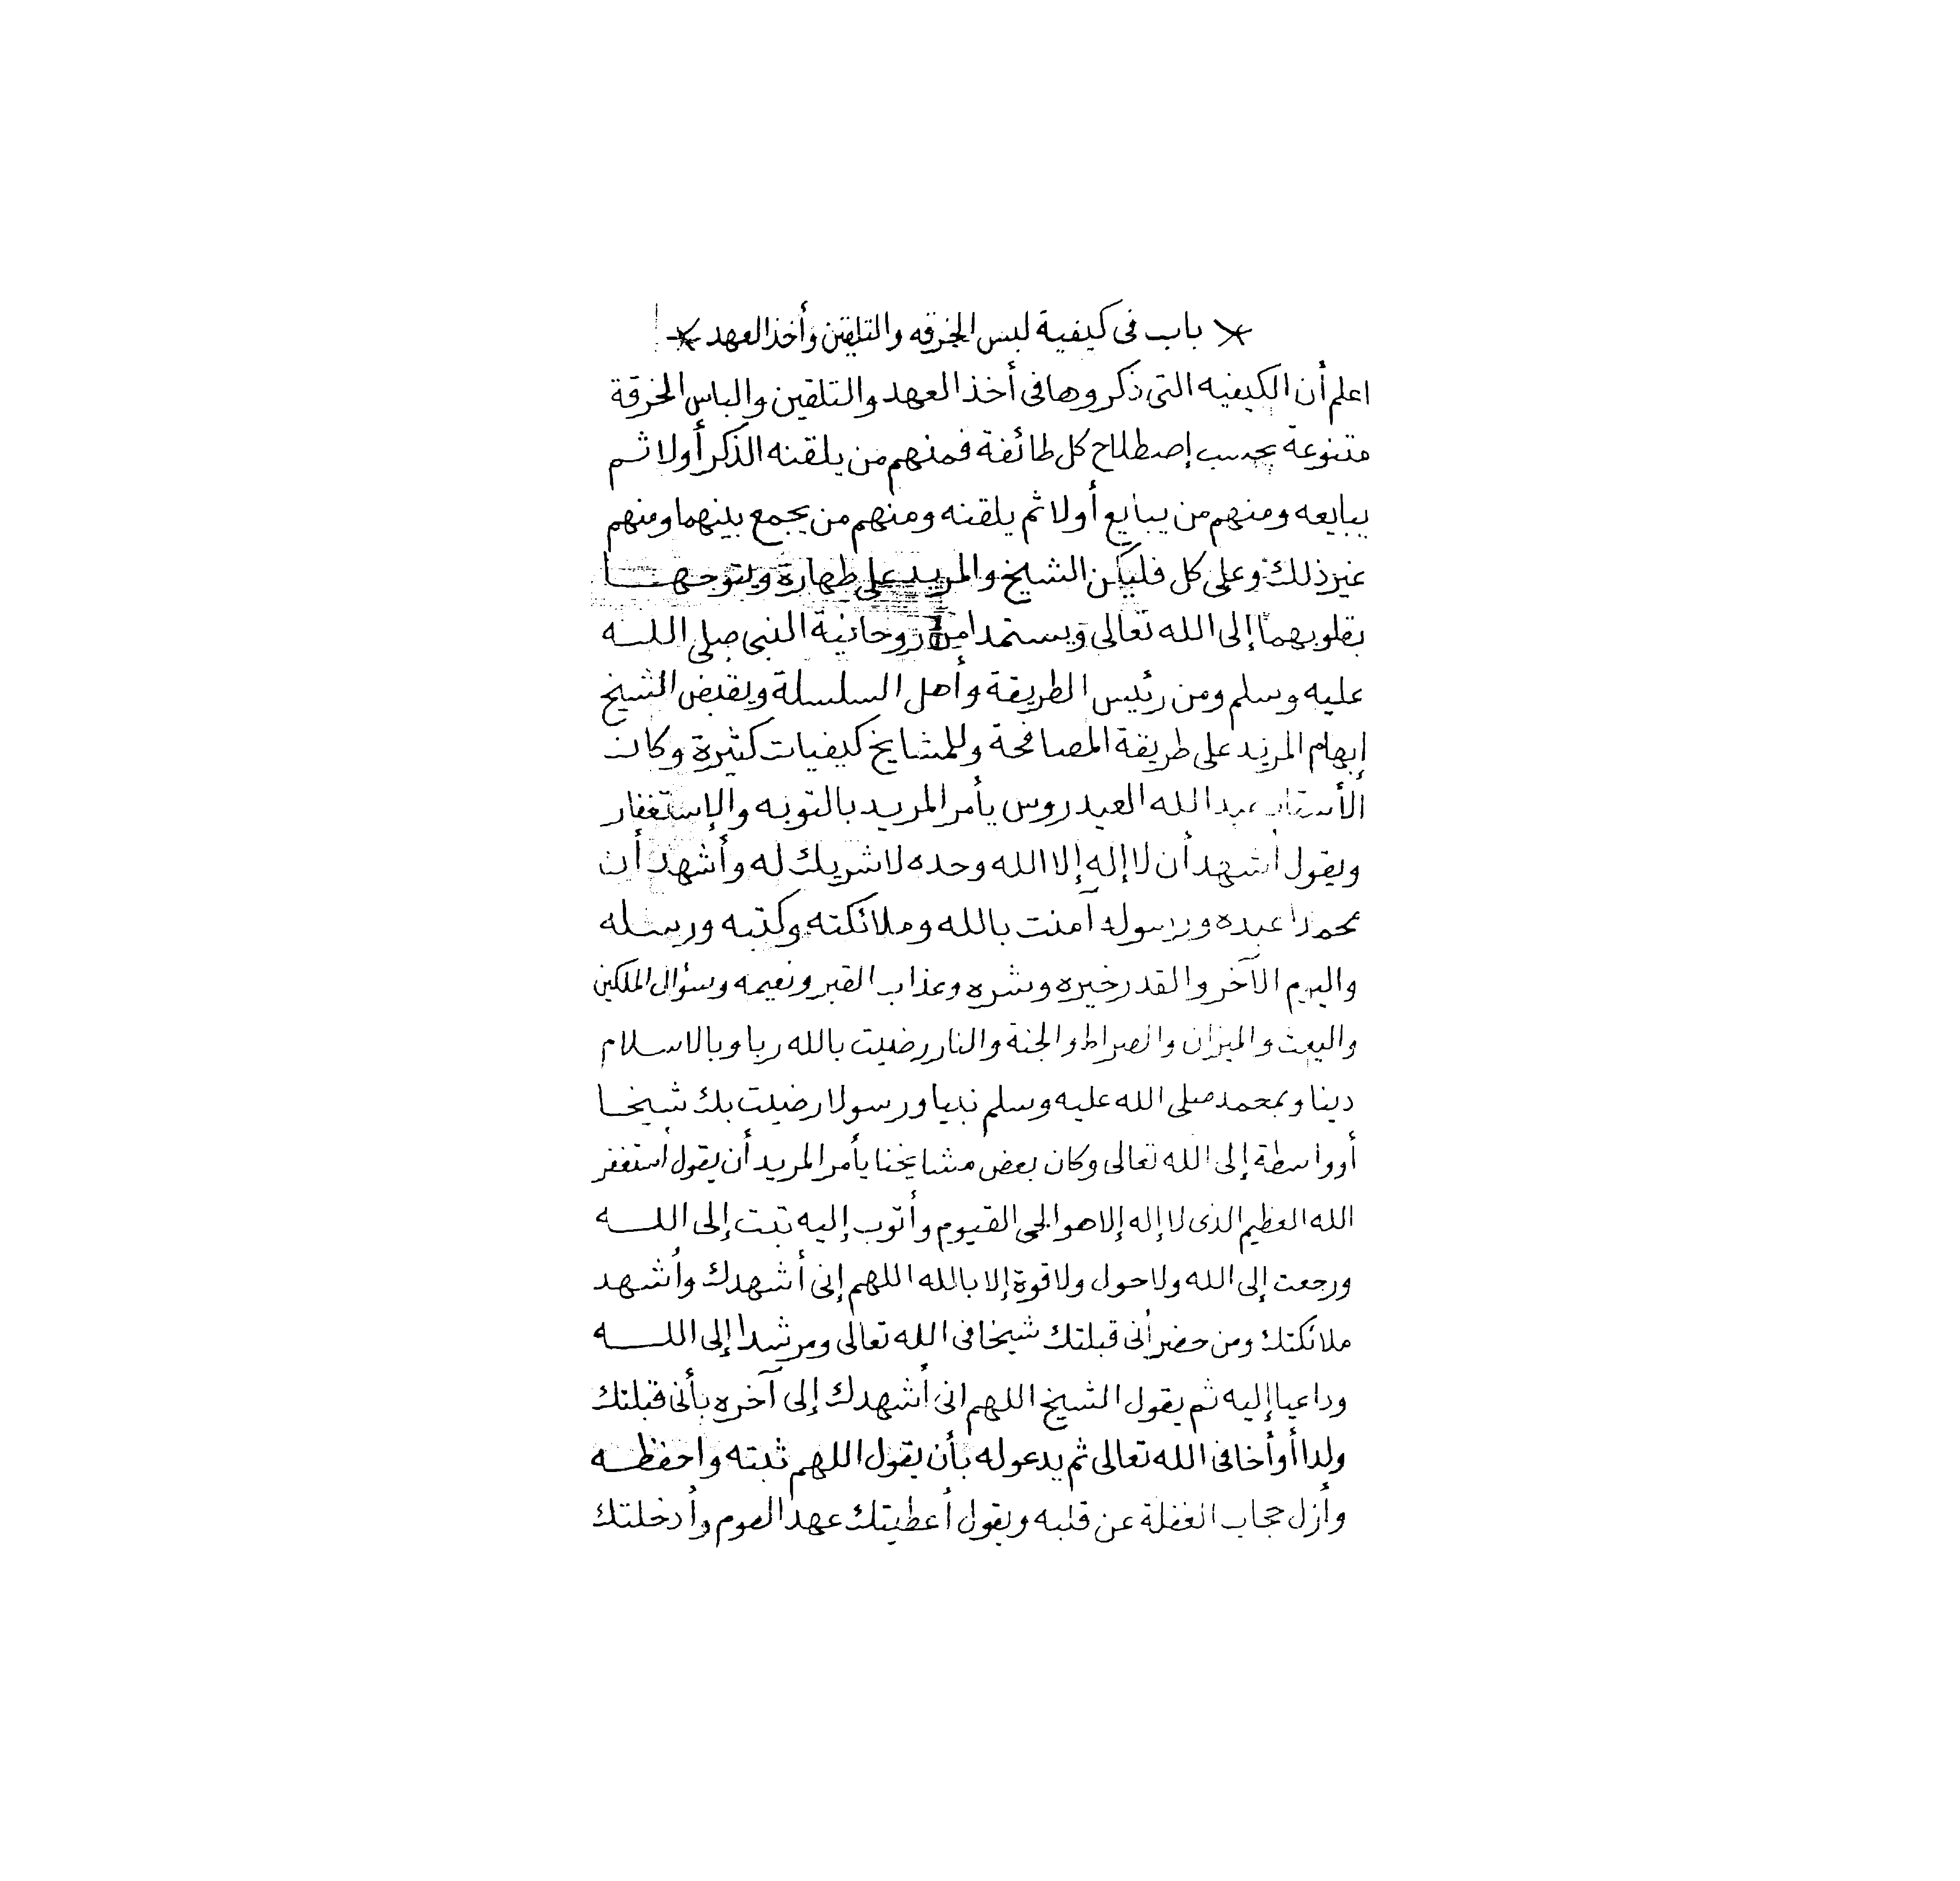 باب فى كيفية لبس الخرقه والتلقين وأخذ العهد
اعلم أن الكيفيه التى ذكروها فى أخذ العهد والتلقين والباس الخرقة
متنوعة بحسب إصطلاح كل طائفة فمنهم من يلقنه الذكر أولا ثم
يبايعه ومنهم من يبايع أولا ثم يلقنه ومنهم من يجمع بينهما ومنهم
غير ذلك وعلى كل فليكن الشيخ والمريد على طهارة ويتوجها
بقلوبهما إلى الله تعالى ويستمدا من روحانية النبى صلى الله
عليه وسلم ومن رئيس الطريقة وأهل السلسلة ويقبض الشيخ
إبهام المريد على طريقة المصافحة وللمشايخ كيفيات كثيرة وكان
الأستاذ عبد الله العيدروس يأمر المريد بالتوبه والإستغفار
ويقول أشهد أن لا إله إلا الله وحده لا شريك له وأشهد أن
محمدا عبده ورسوله آمنت بالله وملائكته وكتبه ورسله
واليوم الآخر والقدر خيره وشره وعذاب القبر ونعيمه وسؤال الملكين
والبعث والميزان والصراط والجنة والنار رضيت بالله ربا وبالاسلام
دينا وبمحمد صلى الله عليه وسلم نبيا ورسولا رضيت بك شيخا
أو واسطة إلى الله تعالى وكان بعض مشايخنا يأمر المريد أن يقول أستغفر
الله العظيم الذى لا إله إلا هو الحى القيوم وأتوب إليه تبت إلى الله
ورجعت إلى الله ولا حول ولا قوة إلا بالله اللهم إنى أشهدك وأشهد
ملائكتك ومن حضر أنى قبلتك شيخا فى الله تعالى ومرشدا إلى الله
وداعيا إليه ثم يقول الشيخ اللهم انى أشهدك إلى آخره بأنى قبلتك
ولدا أو أخا فى الله تعالى ثم يدعو له بأن يقول اللهم ثبته واحفظه
وأزل حجاب الغفلة عن قلبه ويقول أعطيتك عهد الصوم وأدخلتك